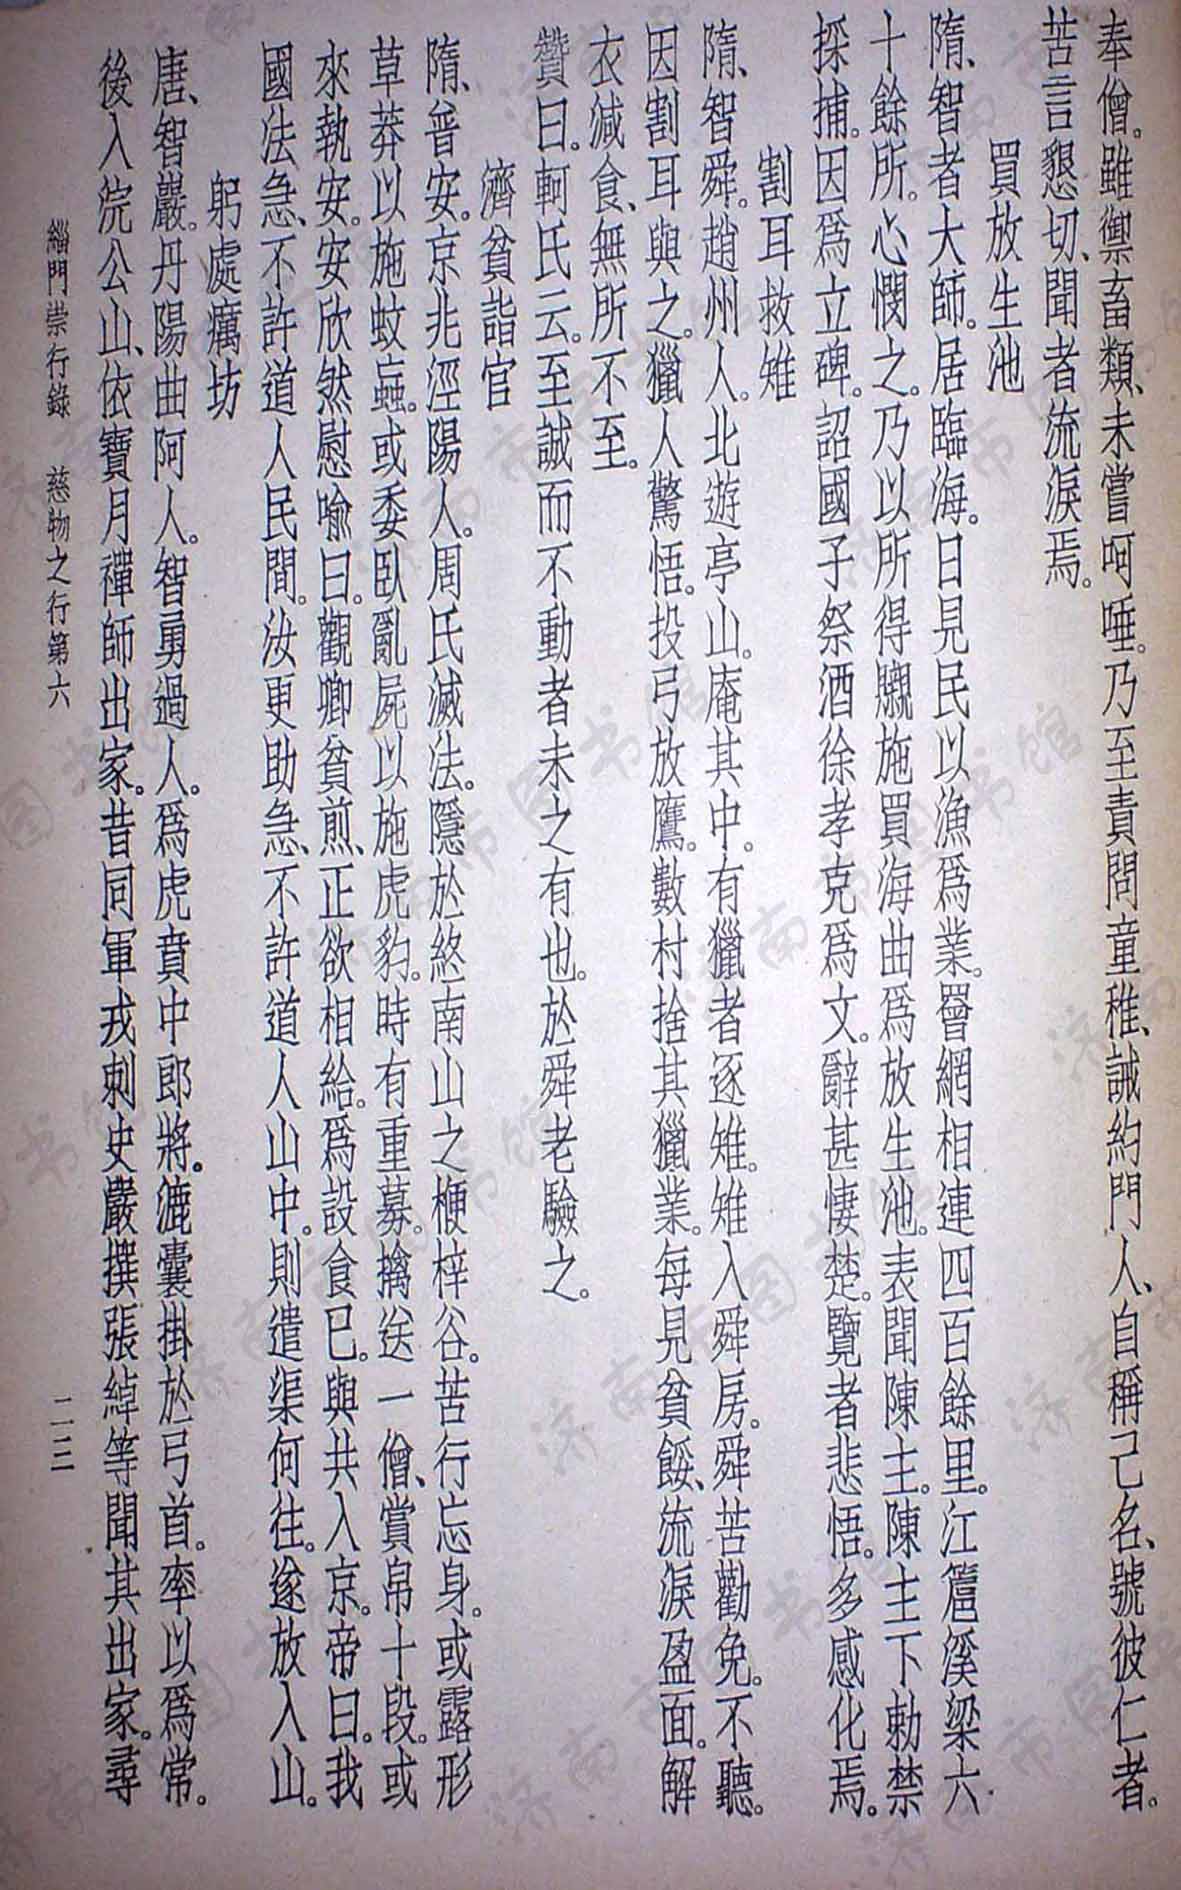 奉僧。雖禦畜類、未嘗呵唾。乃至責問童稚、誡約門人、自稱己名、號彼仁者。
苦言懇切、聞者流淚焉。
買放生池
隋、智者大師。居臨海。日見民以漁爲業。罾網相連四百餘里。江篦溪梁六
十餘所。心憫之。乃以所得嚫施買海曲爲放生池。表聞陳主。陳主下勅禁
採捕。因爲立碑。詔國子祭酒徐孝克爲文。辭甚悽楚。覽者悲悟。多感化焉。
割耳救雉
隋、智舜。趙州人。北遊亭山。庵其中。有獵者逐雉。雉入舜房。舜苦勸免。不聽。
因割耳與之。獵人驚悟。投弓放鷹。數村捨其獵業。每見貧餒、流淚盈面。解
衣減食、無所不至。
贊曰。軻氏云。至誠而不動者未之有也。於舜老驗之。
濟貧詣官
隋、普安。京兆涇陽人。周氏滅法。隱於終南山之楩梓谷。苦行忘身。或露形
草莽以施蚊蝱。或委臥亂屍以施虎豹。時有重募。擒送一僧、賞帛十段。或
來執安。安欣然慰喻曰。觀卿貧煎、正欲相給。爲設食已。與共入京。帝曰。我
國法急、不許道人民間。汝更助急、不許道人山中。則遣渠何往。遂放入山。
躬處癘坊
唐、智巖。丹陽曲阿人。智勇過人。爲虎賁中郎將。漉囊掛於弓首。率以爲常。
後入浣公山、依寶月禪師出家。昔同軍戎刺史嚴撰張綽等聞其出家。尋
緇門崇行錄 慈物之行第六 二三